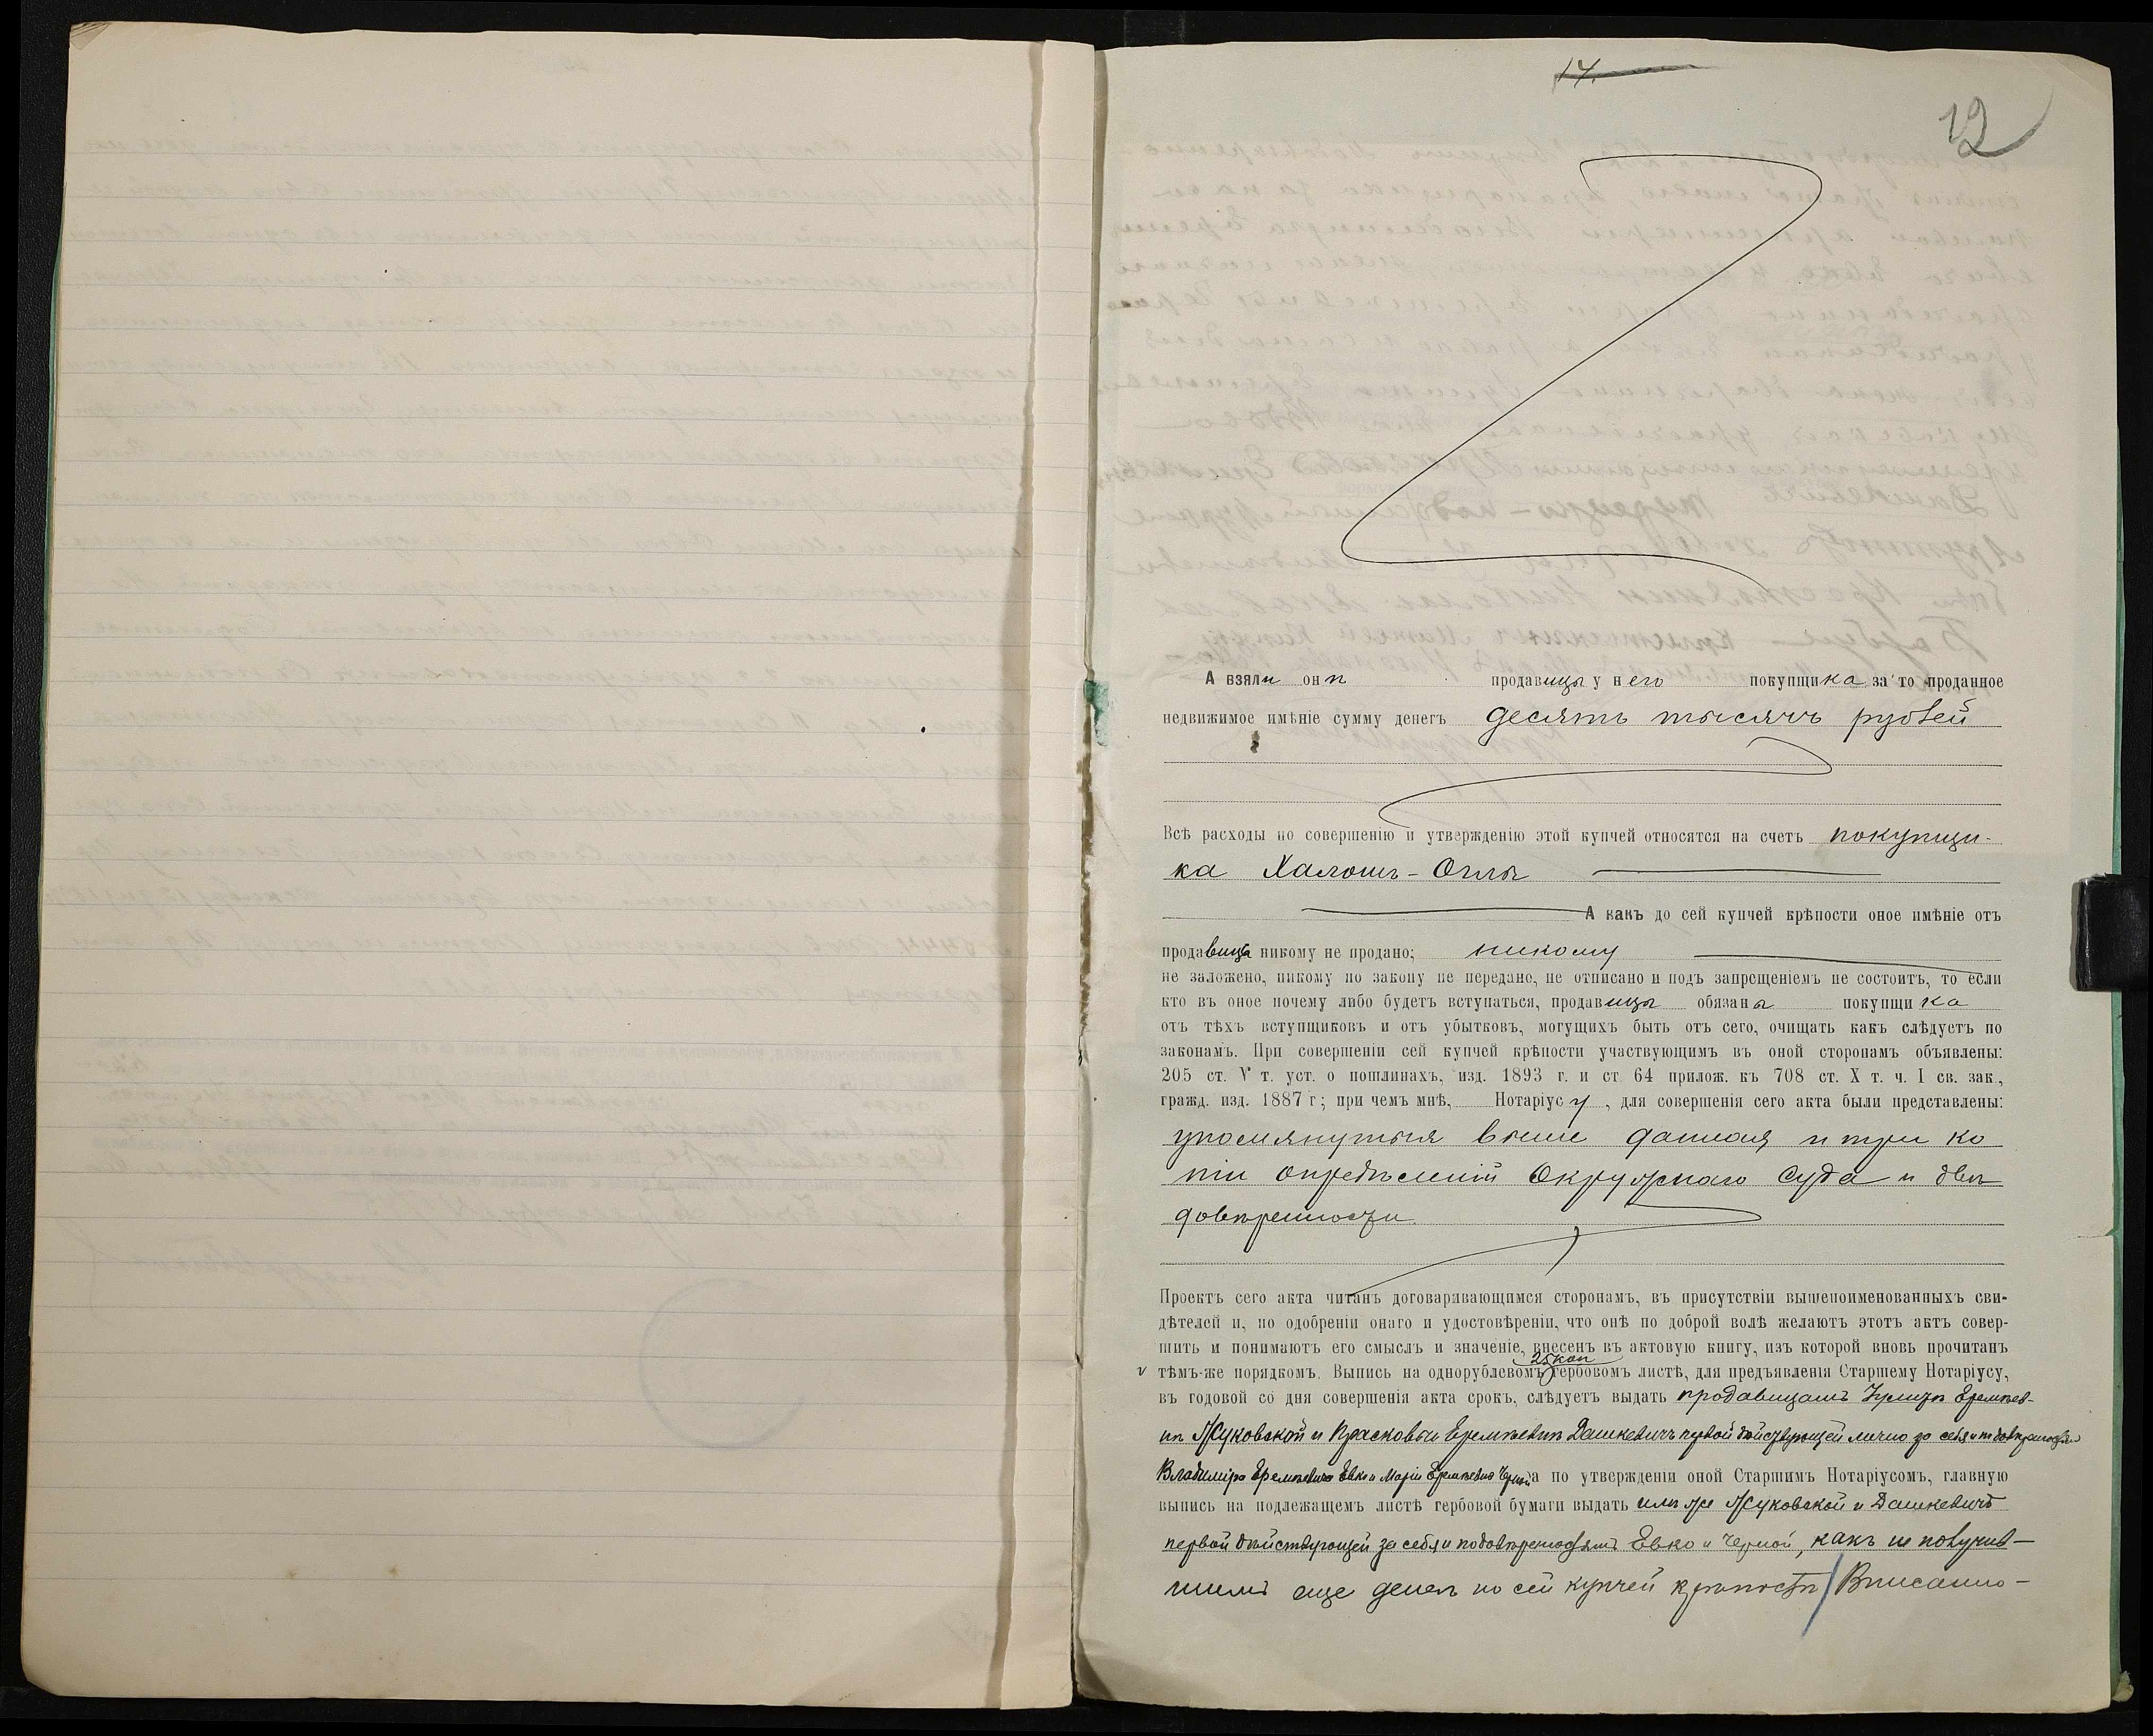 14.
12
А взяли онѣ продавицы у него покупщика за то проданное
недвижимое имѣніе сумму денегъ десять тысячъ рублей
Всѣ расходы по совершенію и утвержденію этой купчей относятся на счетъ покупщи-
ка Халошъ-Оглы
А какъ до сей купчей крѣпости оное имѣніе отъ
продавицъ никому не продано; никому
не заложено, никому по закону не передано, не отписано и подъ запрещеніемъ не состоитъ, то если
кто въ оное почему либо будетъ вступаться, продавицы обязаны покупщика
отъ тѣхъ вступщиковъ и отъ убытковъ, могущихъ быть отъ сего, очищать какъ слѣдуетъ по
законамъ. При совершеніи сей купчей крѣпости участвующимъ въ оной сторонамъ объявлены:
205 ст. V т. уст. о пошлинахъ, изд. 1893 г. и ст 64 прилож. къ 708 ст. X т. ч. I св. зак.,
гражд. изд. 1887 г; при чемъ мнѣ, Нотаріусу, для совершенія сего акта были представлены:
упомянутыя выше данная и три ко
піи опредѣленій Окружнаго Суда и двѣ
довѣренности
Проектъ сего акта читанъ договаривающимся сторонамъ, въ присутствіи вышепоименованныхъ сви-
дѣтелей и, по одобреніи онаго и удостовѣреніи, что онѣ по доброй волѣ желаютъ этотъ актъ совер-
шить и понимаютъ его смыслъ и значеніе, внесенъ въ актовую книгу, изъ которой вновь прочитанъ
25 коп
v тѣмъ-же порядкомъ. Выпись на однорублевомъ гербовомъ листѣ, для предъявленія Старшему Нотаріусу,
въ годовой со дня совершенія акта срокъ, слѣдуетъ выдать продавицамъ Еремѣев-
нѣ Жуковской и Прасковьи Еремѣевнѣ Дашкевичъ первой дѣйствующей лично за себя и по довѣренностямъ
Владиміра Еремѣевича Евко и Маріи Еремѣевны Черной а по утвержденіи оной Старшимъ Нотаріусомъ, главную
выпись на подлежащемъ листѣ гербовой бумаги выдать имъ же Жуковской и Дашкевичъ
первой дѣйствующей за себя и по довѣренностямъ Евко и Черной, какъ не получив-
шимъ еще денегъ по сей купчей крѣпости / Вписанно-